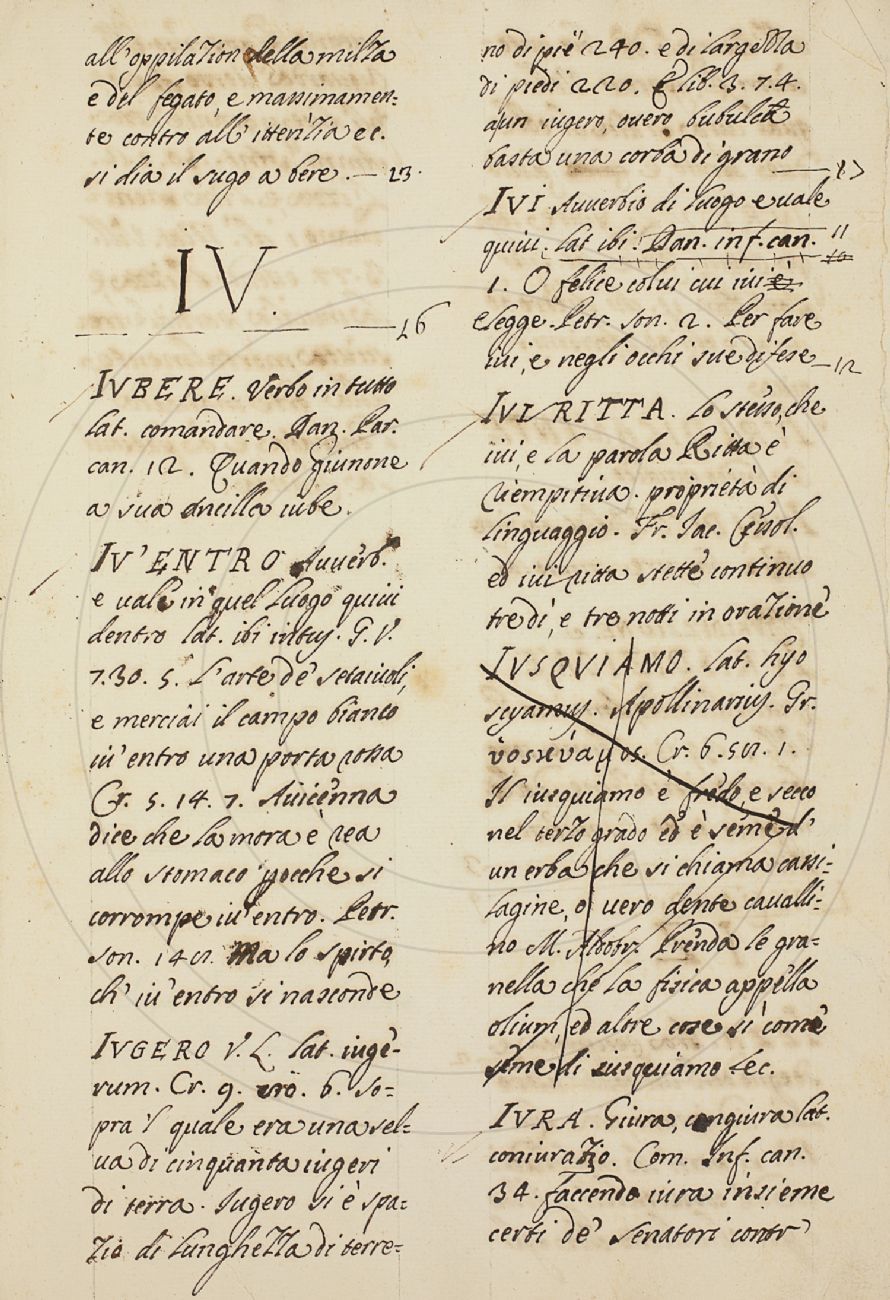 all'oppilazion della milza
e del fegato, e massimamen=
te contro all'itterizia ec.
si dia il sugo a bere. — 23.
IV.
16
IVBERE. Verbo in tutto
lat. comandare. Dan. Par.
can. 12. Quando Giunone
a sua ancilla iube.
IV'ENTRO Avverb.
e vale in quel luogo quivi
dentro lat. ibi intus. G. V.
7.30. 5. L'arte de' setaiuoli,
e merciai il campo bianco
iu'entro una porta rossa
Cr. 5. 14. 7. Avicenna
dice che la mora è rea
allo stomaco, poiche si
corrompe iu'entro. Petr.
son. Ma lo spirto,
ch'iu'entro si nasconde
IVGERO V. L. lat. iugè=
rum. Cr. 9. 6. So=
pra'l quale era una sel=
va di cinquanta iugeri
di terra. Iugero si è spa=
zio di lunghezza di terre=
no di piè 240. e di larghezza
di piedi 220. E lib. 3. 7. 4.
a un iugero, overo bubulca
basta una corba di grano
IVI Avverbio di luogo e vale
quivi. lat ibi. Dan. inf. can. 11
10
1. O felice colui cui ivi è
elegge. Petr. son. 2. Per fare
ivi, e negli occhi sue difese — 12
IVI RITTA. Lo stesso, che
ivi, e la parola Ritta è
riempitiva. proprietà di
linguaggio. Fr. Iac. Cesol.
ed ivi ritta stette continuo
tre dì, e tre notti in orazione
IVSQVIAMO. lat. hyo
scyamus. Apollinarius. Gr.
ὑοσκύαμος. Cr. 6. 1.
Il iusquiamo è fredo, e secco
nel terzo grado ed è seme d'
un erba che si chiama cassi=
lagine, o vero dente cavalli=
no M. Aldobr. Prenda le gra=
nella che la fisica appella
olium, ed altre cose sì come
seme di iusquiamo &c.
IVRA. Giura, congiura lat.
coniuratio. Com. Inf. can.
34. faccendo iura insieme
certi de' Senatori contr'